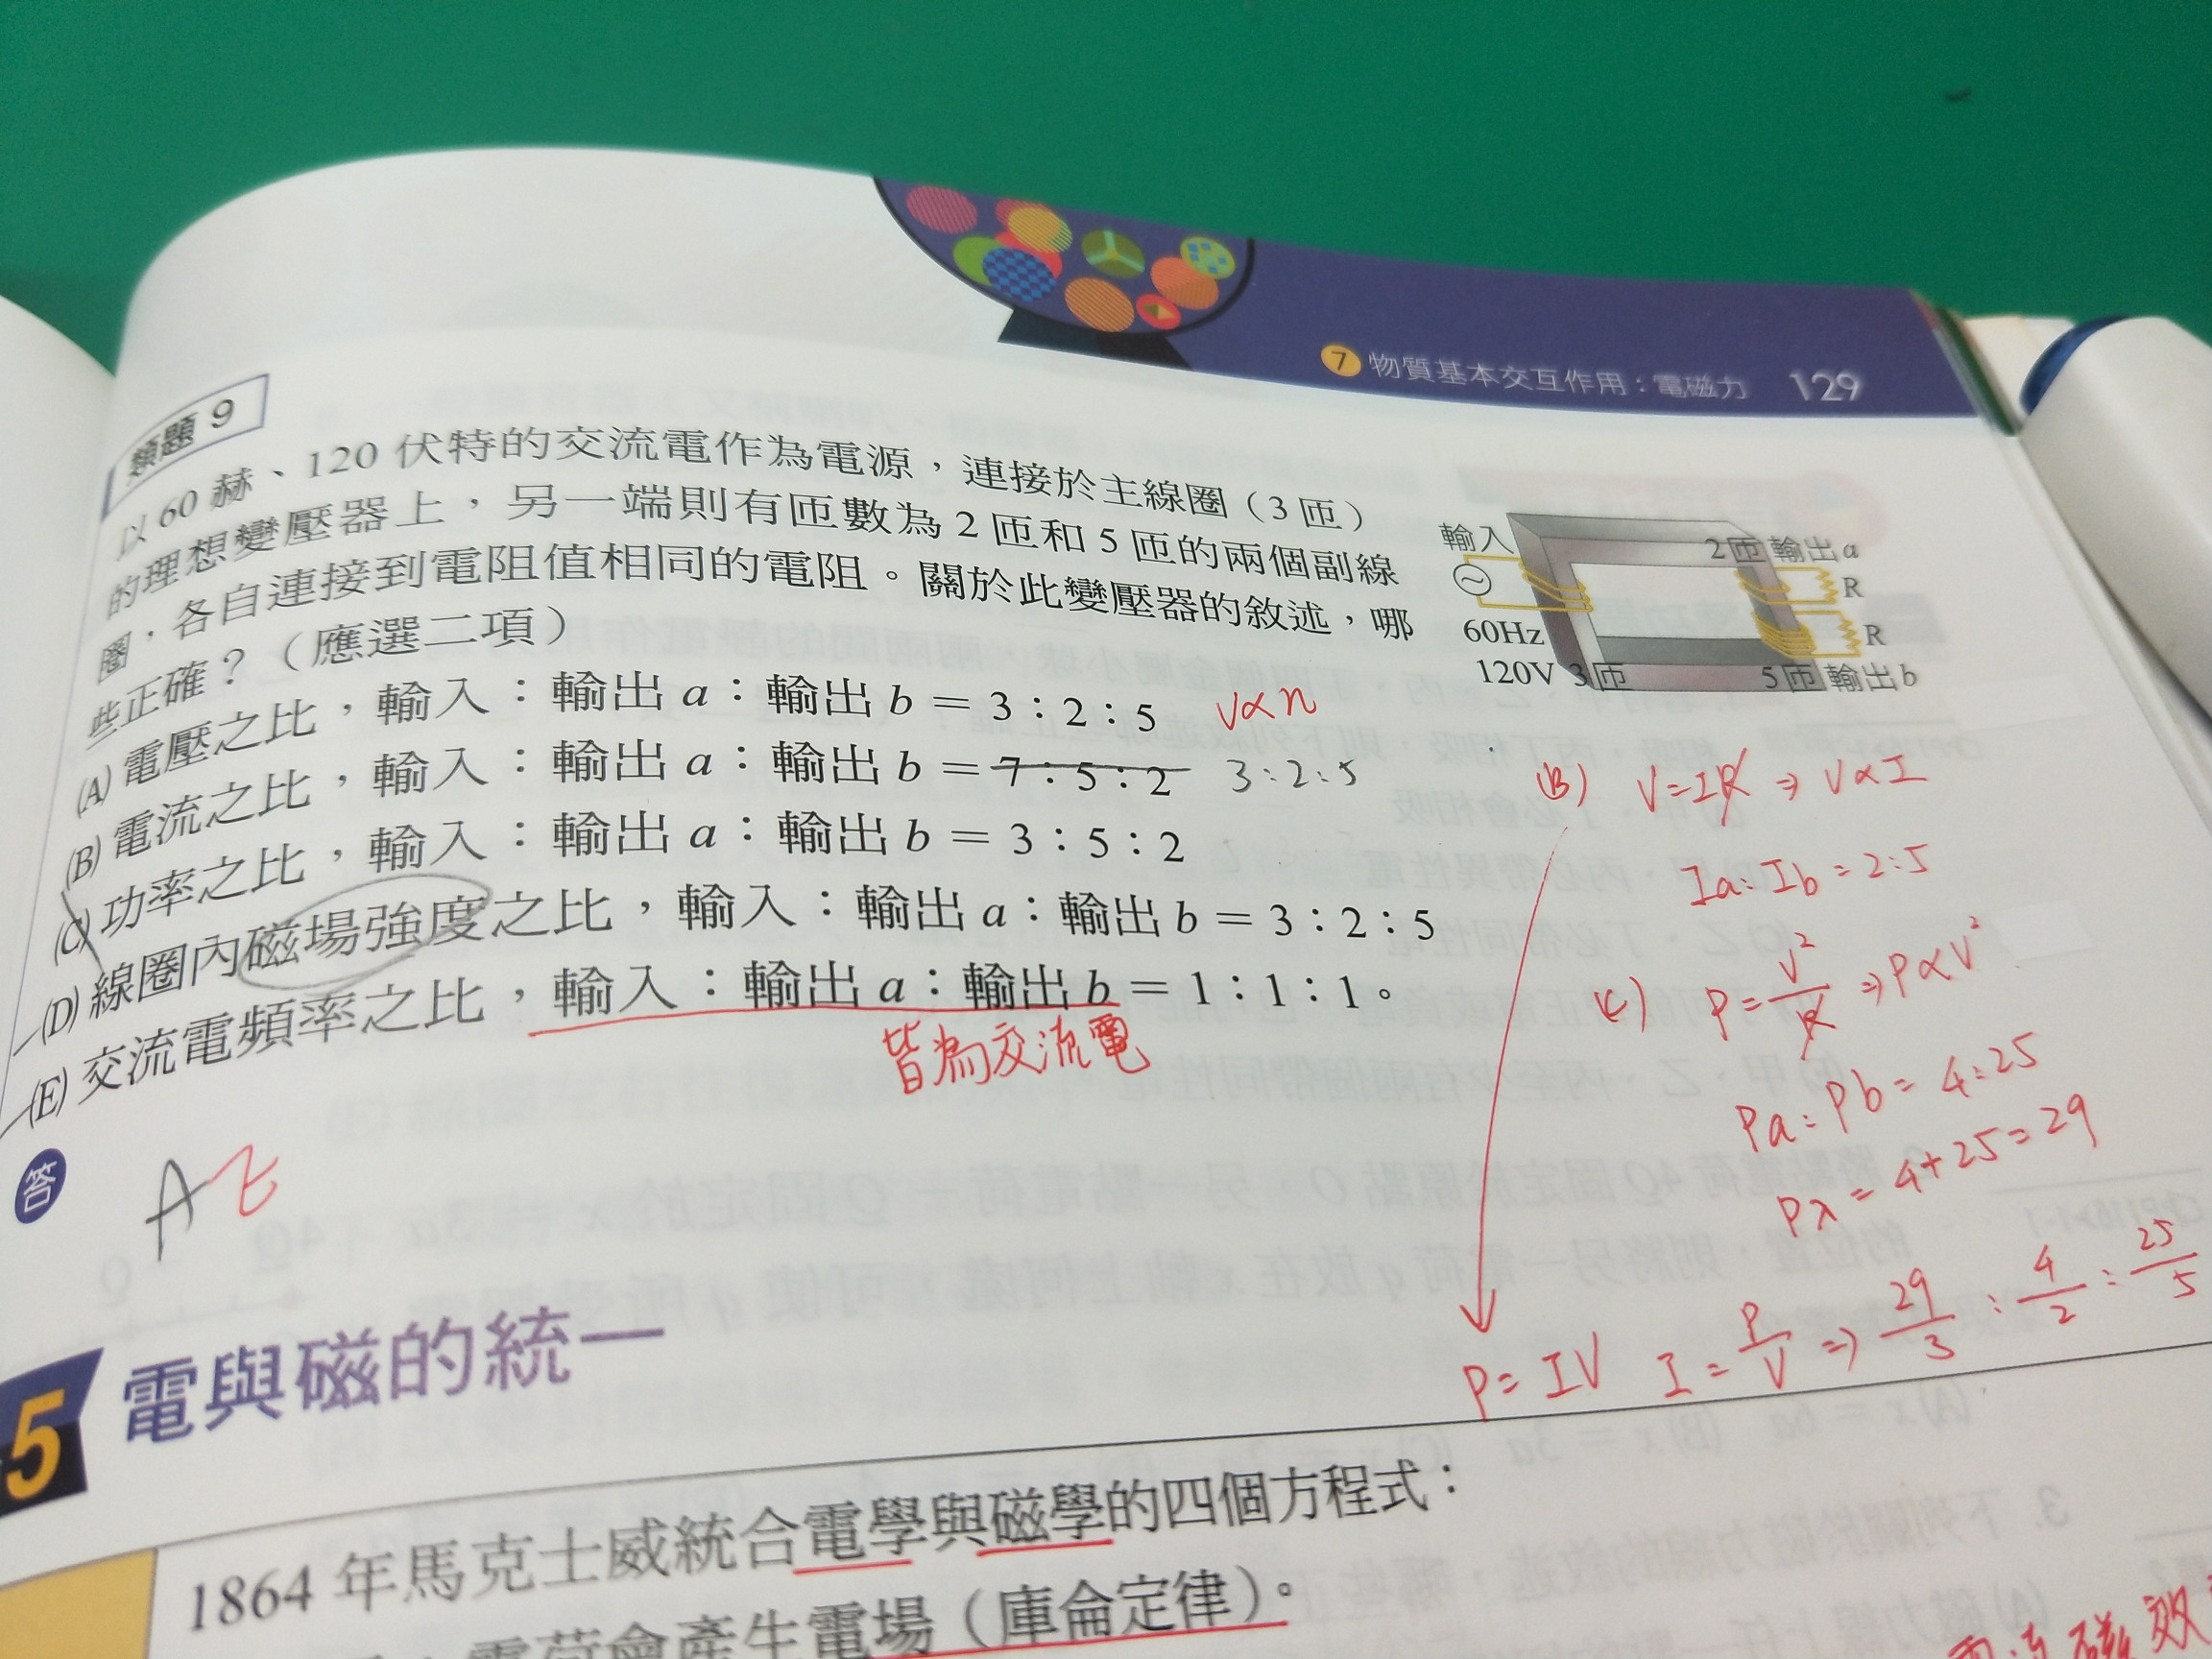 7 物質基本交互作用：電磁力 129
類題 9
以 60 赫、120 伏特的交流電作為電源，連接於主線圈（3 匝）
的理想變壓器上，另一端則有匝數為 2 匝和 5 匝的兩個副線
圈，各自連接到電阻值相同的電阻。關於此變壓器的敘述，哪
些正確？（應選二項）
(A) 電壓之比，輸入：輸出 a：輸出 b = 3：2：5 V∝n
(B) 電流之比，輸入：輸出 a：輸出 b = 7：5：2 3:2:5
(C) 功率之比，輸入：輸出 a：輸出 b = 3：5：2
(D) 線圈內磁場強度之比，輸入：輸出 a：輸出 b = 3：2：5
(E) 交流電頻率之比，輸入：輸出 a：輸出 b = 1：1：1。
皆為交流電
答 AE
輸入
60Hz
120V 3匝
2匝 輸出 a
R
R
5匝 輸出 b
(B) V=IR ⇒ V∝I
Ia:Ib=2:5
(C) P=V²/R ⇒ P∝V²
Pa:Pb=4:25
P入=4+25=29
P=IV I=P/V ⇒ 29/3:4/2:25/5
5 電與磁的統一
1864 年馬克士威統合電學與磁學的四個方程式：
電荷會產生電場（庫侖定律）。